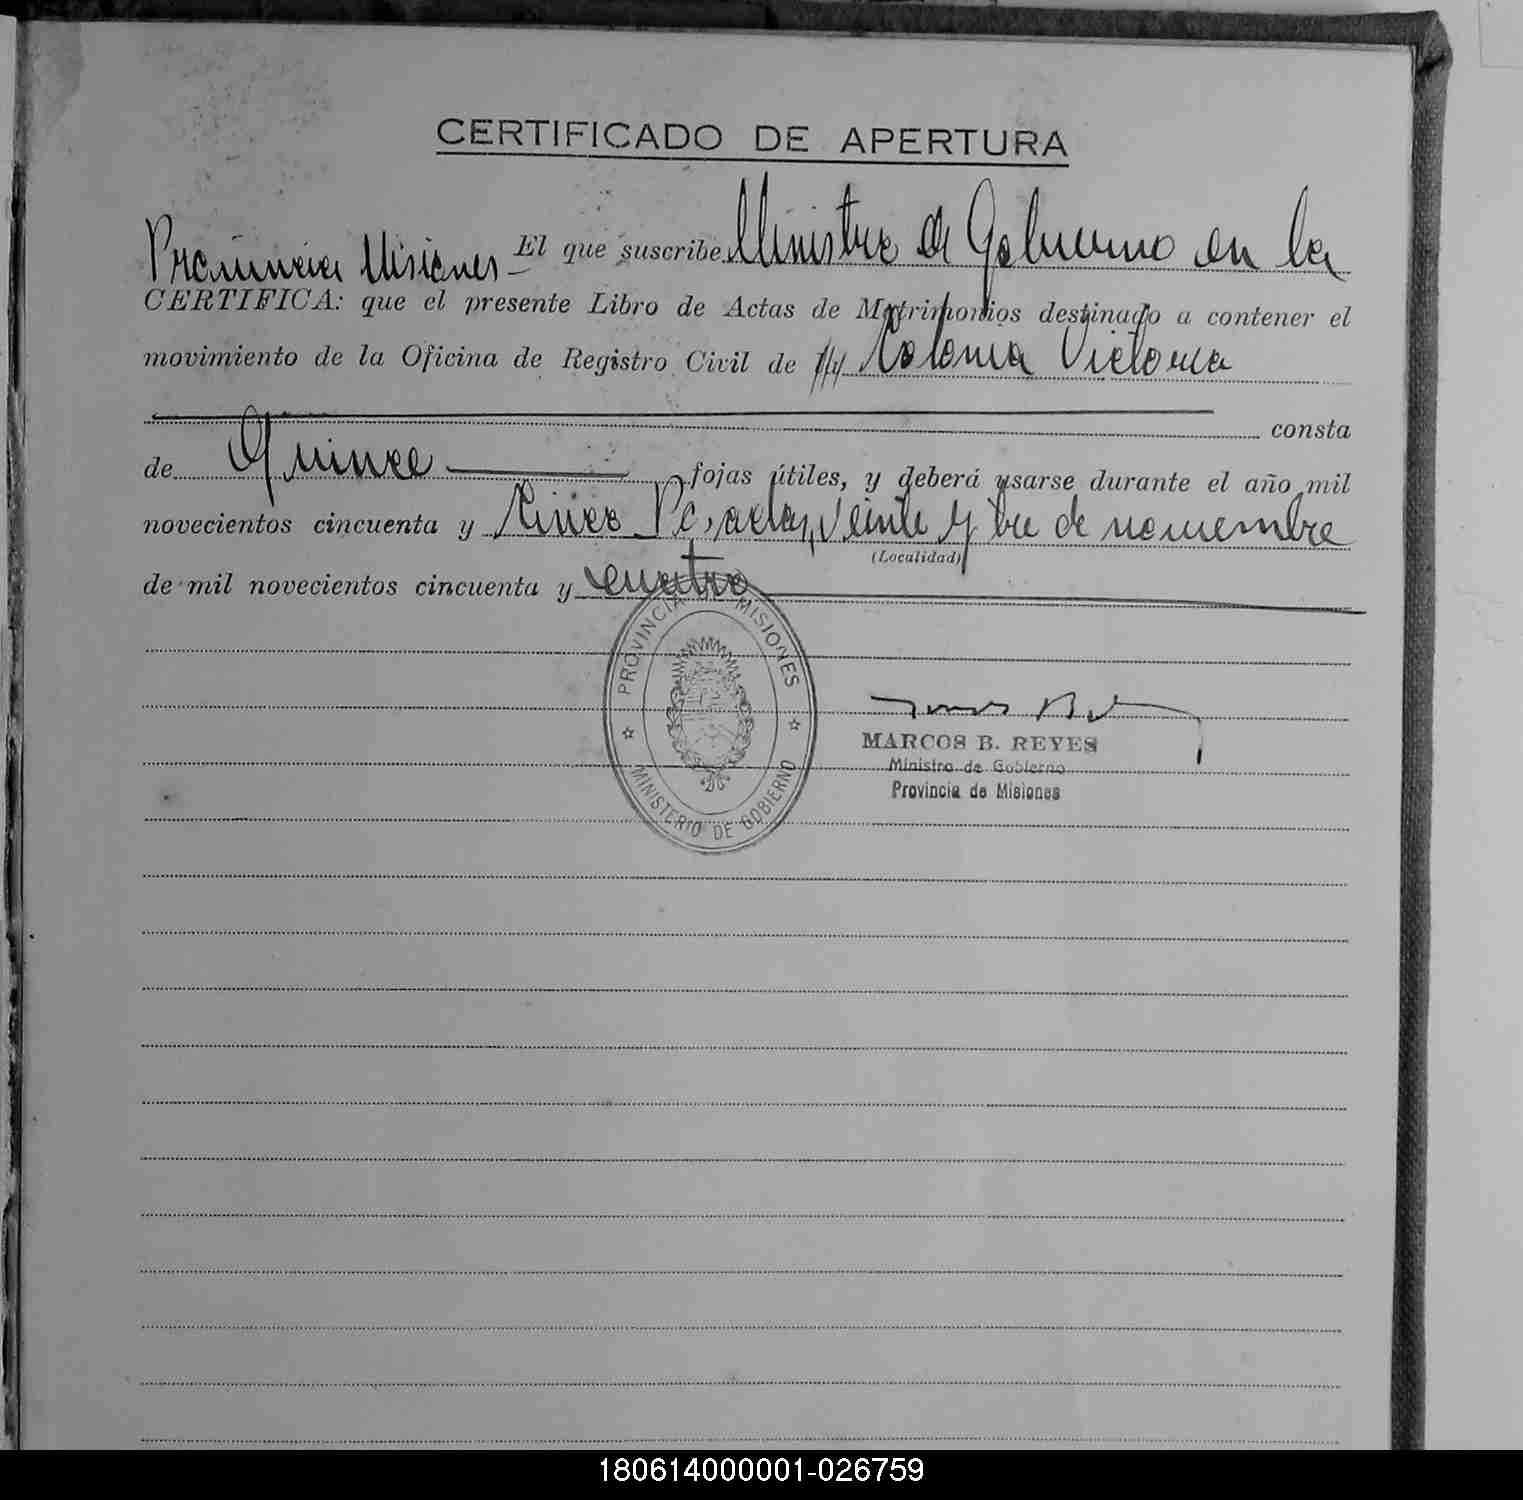 CERTIFICADO DE APERTURA
El que suscribe Ministro de Gobierno en la
Provincia Misiones
CERTIFICA: que el presente Libro de Actas de Matrimonios destinado a contener el
movimiento de la Oficina de Registro Civil de Colonia Victoria
consta
de Quince fojas útiles, y deberá usarse durante el año mil
novecientos cincuenta y Cinco Ps, adas, veinte y tre de noviembre
(Localidad)
de mil novecientos cincuenta y cuatro
PROVINCIA MISIONES
MINISTERIO DE GOBIERNO
MARCOS B. REYES
Ministro de Gobierno
Provincia de Misiones
180614000001-026759